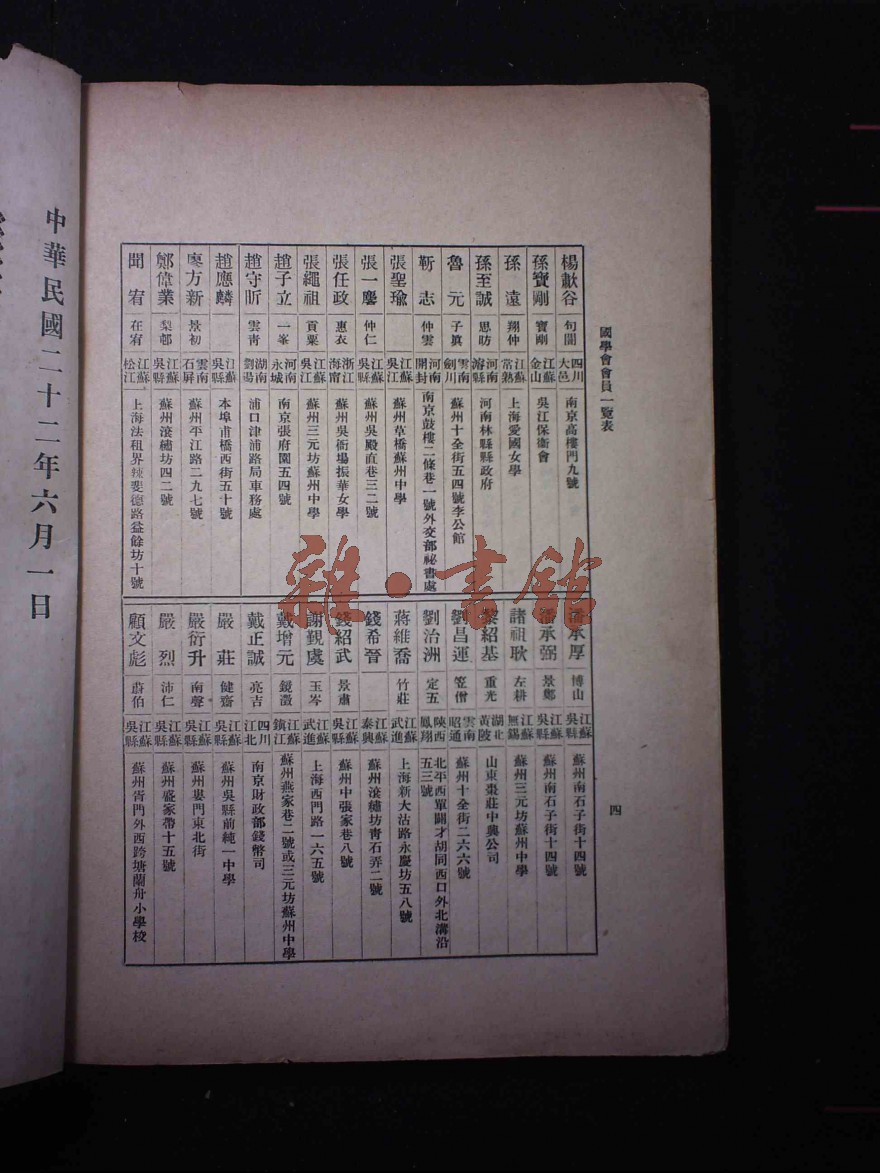 國學會會員一覽表
四
楊獻谷 句闇 四川大邑 南京高樓門九號
孫寶剛 寶剛 江蘇金山 吳江保衛會
孫遠 翔仲 江蘇常熟 上海愛國女學
孫至誠 思昉 河南濬縣 河南林縣縣政府
魯元 子真 雲南劍川 蘇州十全街五四號李公館
靳志 仲雲 河南開封 南京鼓樓二條巷一號外交部祕書處
張聖瑜 江蘇吳江 蘇州草橋蘇州中學
張一麐 仲仁 江蘇吳縣 蘇州吳殿直巷三二號
張任政 惠衣 浙江海甯 蘇州吳衙場振華女學
張繩祖 貢粟 江蘇吳江 蘇州三元坊蘇州中學
趙子立 一峯 河南永城 南京張府園五四號
趙守昕 雲青 湖南劉陽 浦口津浦路局車務處
趙應麟 江蘇吳縣 本埠甫橋西街五十號
廖方新 景初 雲南石屏 蘇州平江路二九七號
鄭偉業 梨邨 江蘇吳縣 蘇州滾繡坊四二號
聞宥 在宥 江蘇松江 上海法租界辣斐德路益餘坊十號
潘承厚 博山 江蘇吳縣 蘇州南石子街十四號
潘承弼 景鄭 江蘇吳縣 蘇州南石子街十四號
諸祖耿 左耕 江蘇無錫 蘇州三元坊蘇州中學
黎紹基 重光 湖北黃陂 山東棗莊中興公司
劉昌運 笠僧 雲南昭通 蘇州十全街二六六號
劉治洲 定五 陝西鳳翔 北平西單闢才胡同西口外北溝沿五三號
蔣維喬 竹莊 江蘇武進 上海新大沽路永慶坊五八號
錢希晉 江蘇泰興 蘇州滾繡坊青石弄二號
錢紹武 景肅 江蘇吳縣 蘇州中張家巷八號
謝觀虞 玉岑 江蘇武進 上海西門路一六五號
戴增元 鏡澂 江蘇鎮江 蘇州燕家巷二號或三元坊蘇州中學
戴正誠 亮吉 四川江北 南京財政部錢幣司
嚴莊 健齋 江蘇吳縣 蘇州吳縣前純一中學
嚴衍升 南聲 江蘇吳縣 蘇州婁門東北街
嚴烈 沛仁 江蘇吳縣 蘇州盛家帶十五號
顧文彪 蔚伯 江蘇吳縣 蘇州胥門外西跨塘蘭舟小學校
中華民國二十二年六月一日
雜·書館